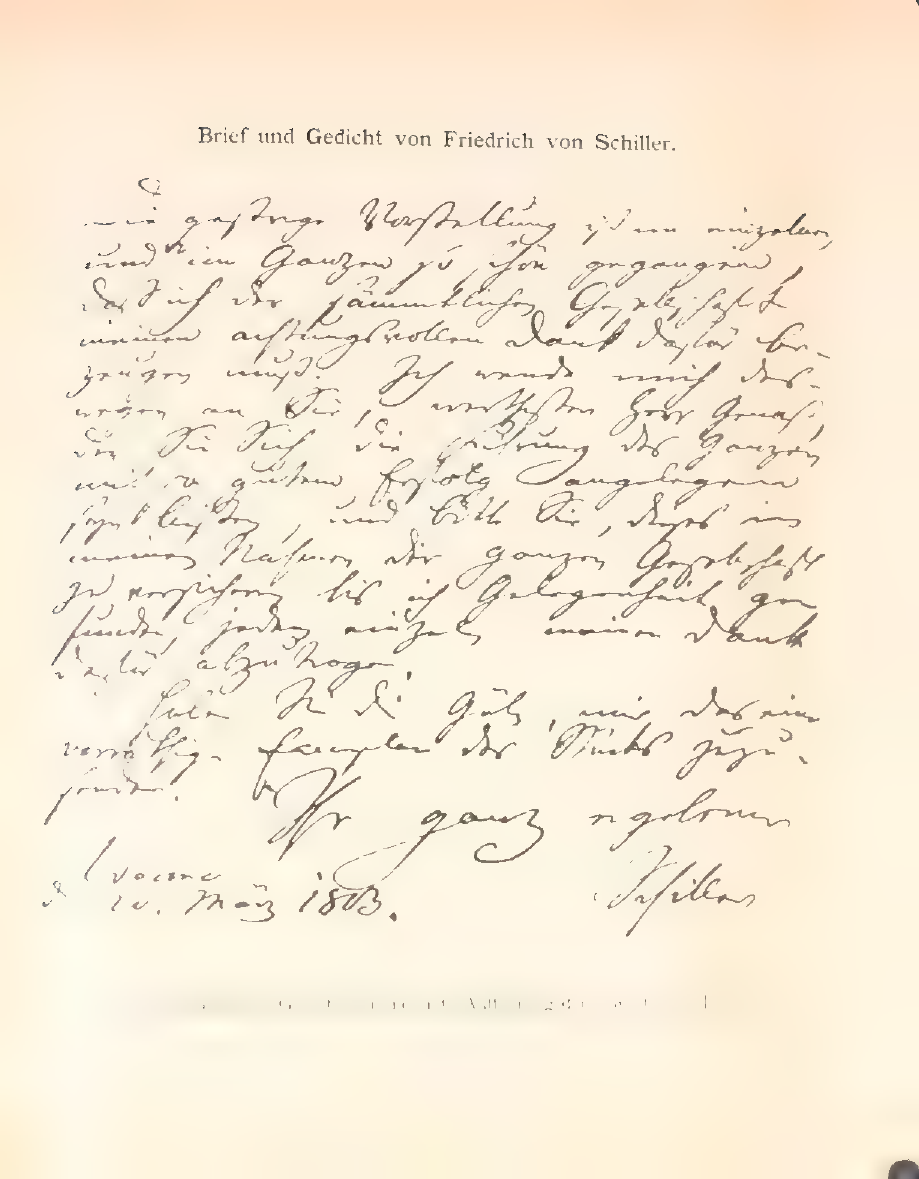 Brief und Gedicht von Friedrich von Schiller.
Die gestrige Vorstellung ist im einzelnen,
und im Ganzen so schön gegangen,
daß ich der sämmtlichen Gesellschaft
meinen achtungsvollen Dank dafür be-
zeugen muß. Ich wende mich des-
wegen an Sie, werthester Herr Genast,
der Sie Sich die Führung des Ganzen
mit so gutem Erfolg angelegen
seyn ließen, und bitte Sie, dieses in
meinem Nahmen der ganzen Gesellschaft
zu versichern bis ich Gelegenheit ge-
funden, jedem einzeln meinen Dank
dafür abzutragen.
Haben Sie die Güte, mir das eine
vorräthige Exemplar des Stücks zuzu-
senden.
Ihr ganz ergebener
Schiller
März 1803.